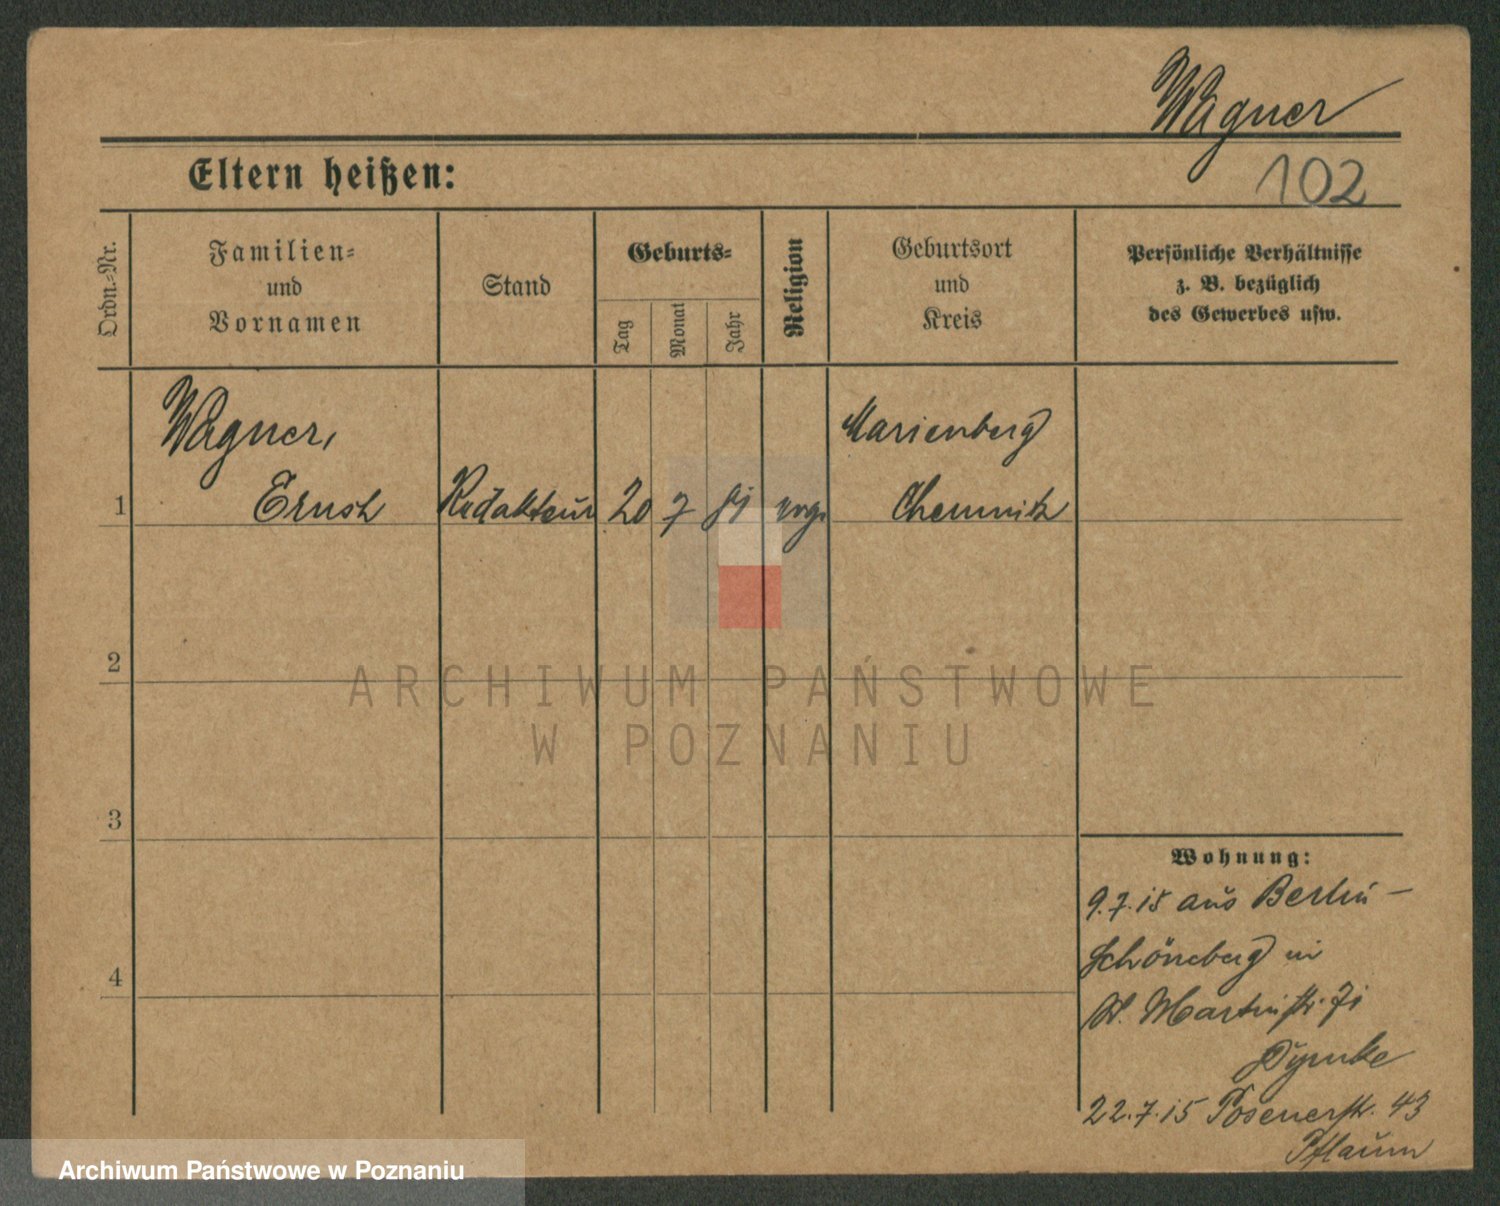 Wagner
Eltern heißen:
102
Ordn.-Nr.
Familien-
und
Vornamen
Stand
Geburts-
Tag
Monat
Jahr
Religion
Geburtsort
und
Kreis
Persönliche Verhältnisse
z. B. bezüglich
des Gewerbes usw.
Wagner,
Marienberg
1
Ernst
Redakteur
20
7
evg.
Chemnitz
2
ARCHIWUM PAŃSTWOWE
W POZNANIU
3
4
Wohnung:
9.7.15 aus Berlin-
Schöneberg in
St. Martinstr. 71
Dymke
22.7.15 Posenerstr. 43
Pflaum
Archiwum Państwowe w Poznaniu